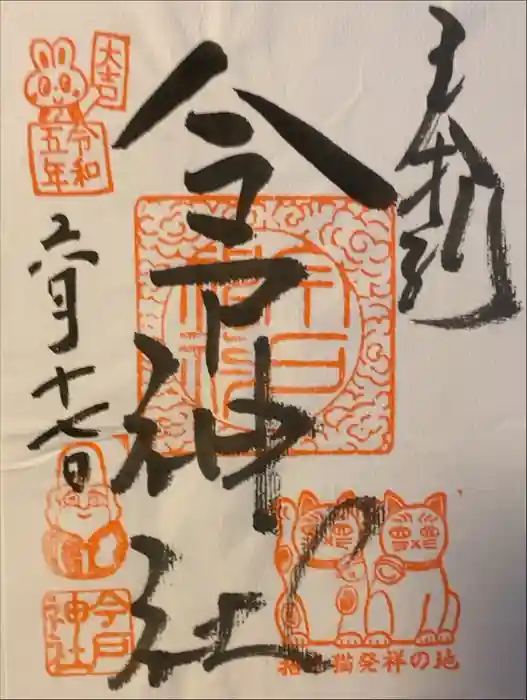 奉拝
今戸神社
大吉
令和
五年
月十七日
今戸
神社
招き猫発祥の地